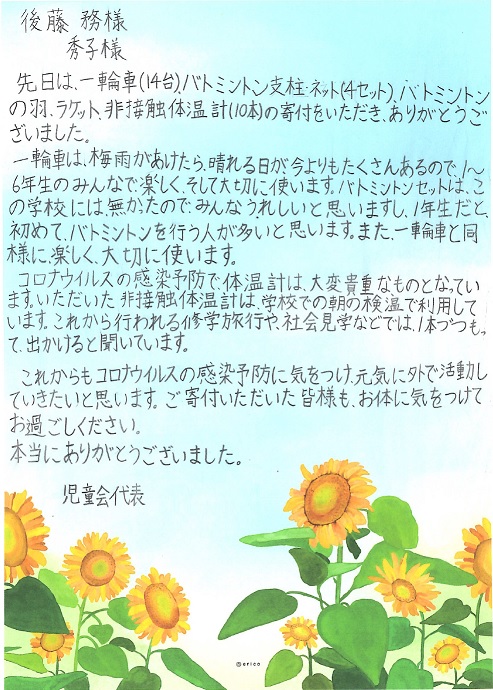 後藤 務様
秀子様
先日は、一輪車(14台)、バトミントン支柱・ネット(4セット)、バトミントン
の羽、ラケット、非接触体温計(10本)の寄付をいただき、ありがとうご
ざいました。
一輪車は、梅雨があけたら、晴れる日が今よりもたくさんあるので、1〜
6年生のみんなで楽しく、そして大切に使います。バトミントンセットは、こ
の学校には、無かったので、みんなうれしいと思いますし、1年生だと、
初めて、バトミントンを行う人が多いと思います。また、一輪車と同
様に、楽しく、大切に使います。
コロナウイルスの感染予防で、体温計は、大変貴重なものとなってい
ます。いただいた非接触体温計は、学校での朝の検温で利用して
います。これから行われる修学旅行や、社会見学などでは、1本づつもっ
て、出かけると聞いています。
これからもコロナウイルスの感染予防に気をつけ、元気に外で活動し
ていきたいと思います。ご寄付いただいた皆様も、お体に気をつけて
お過ごしください。
本当にありがとうございました。
児童会代表
©erico